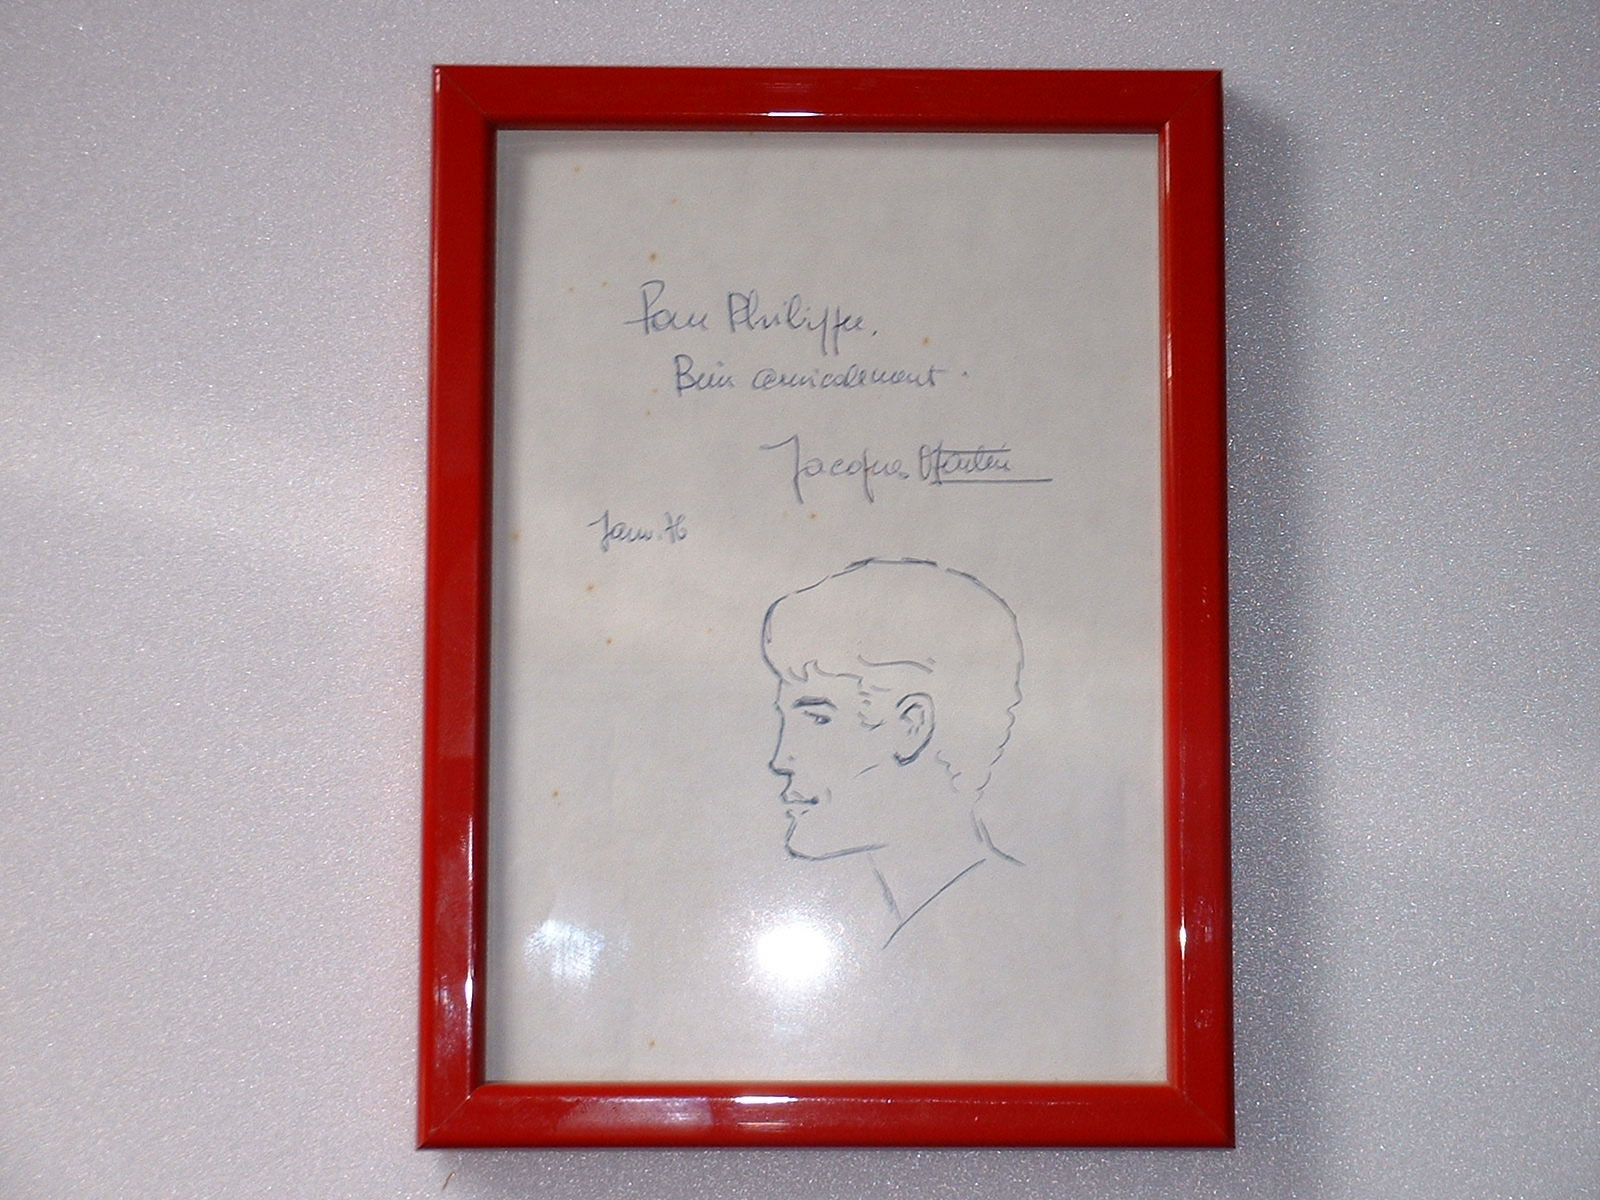 Pour Philippe.
Bien amicalement.
Jacques Martin
Janv. 76